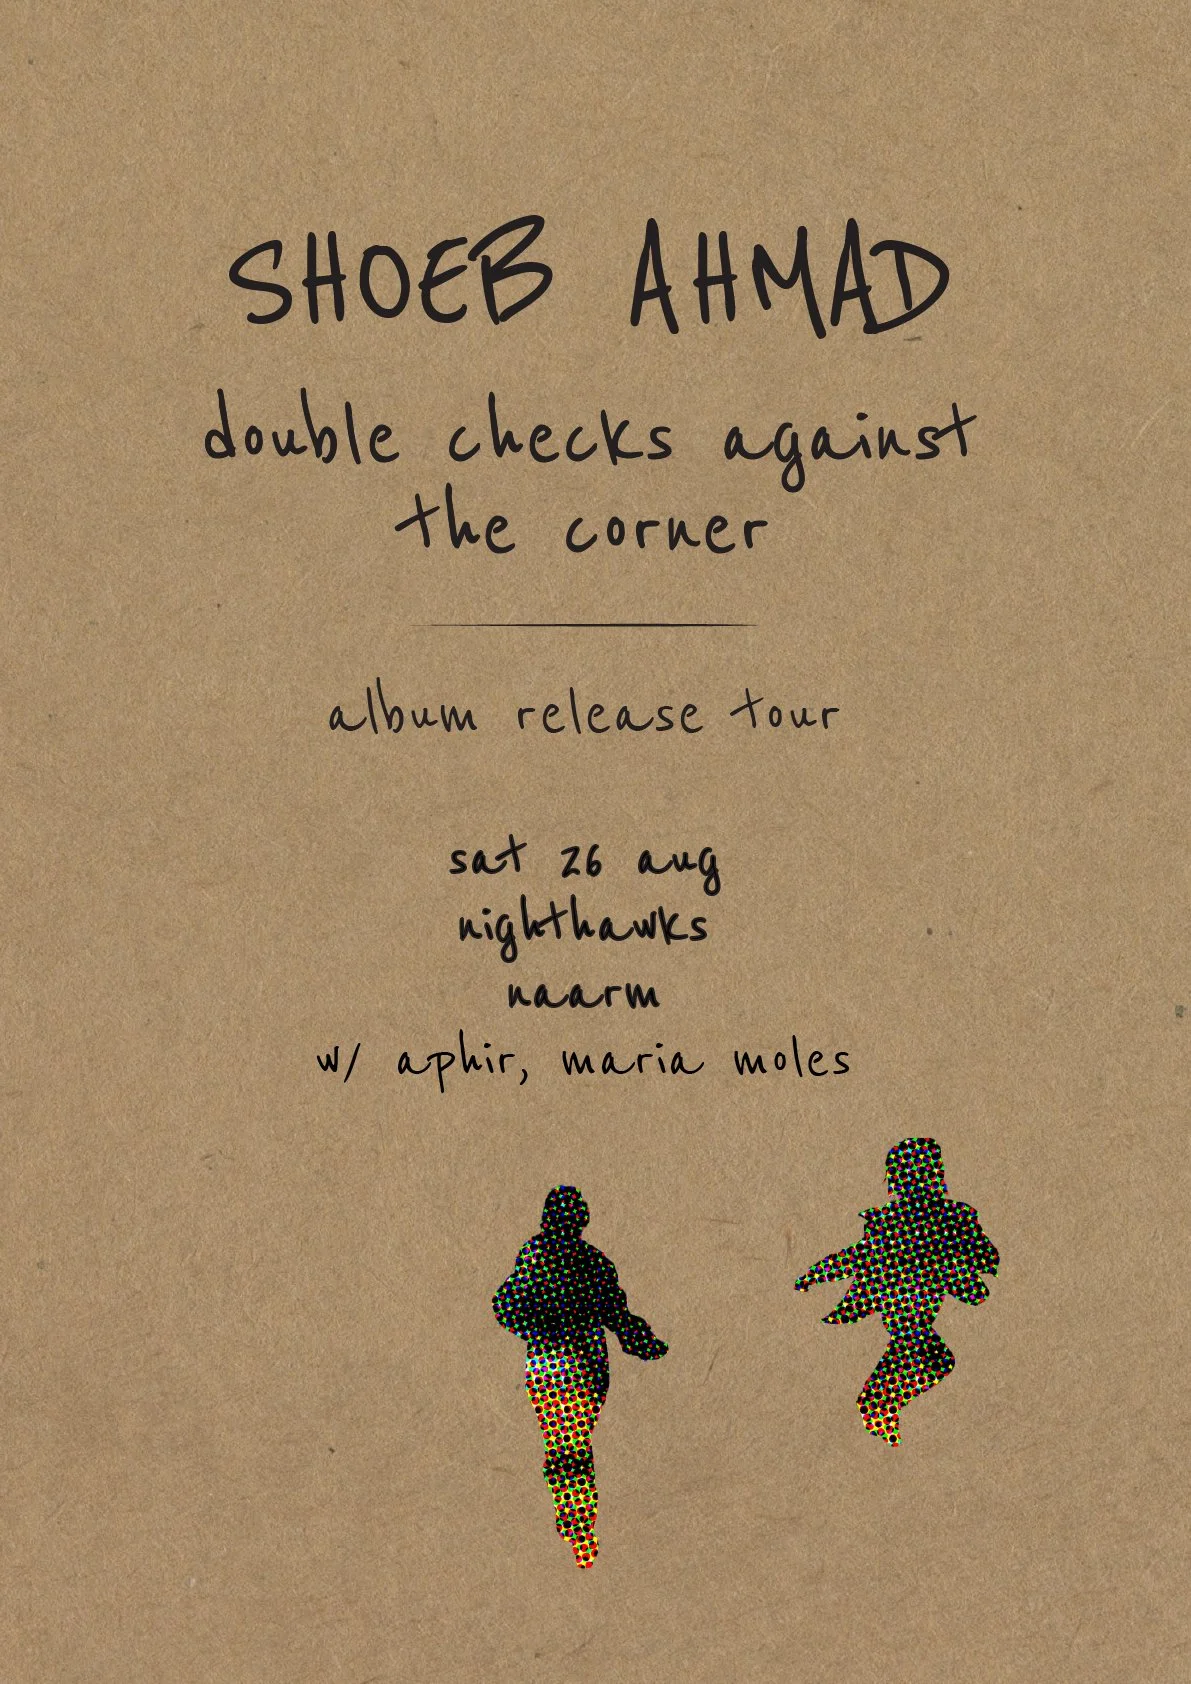 SHOEB AHMAD
double checks against
the corner
album release tour
sat 26 aug
nighthawks
naarm
w/ aphir, maria moles